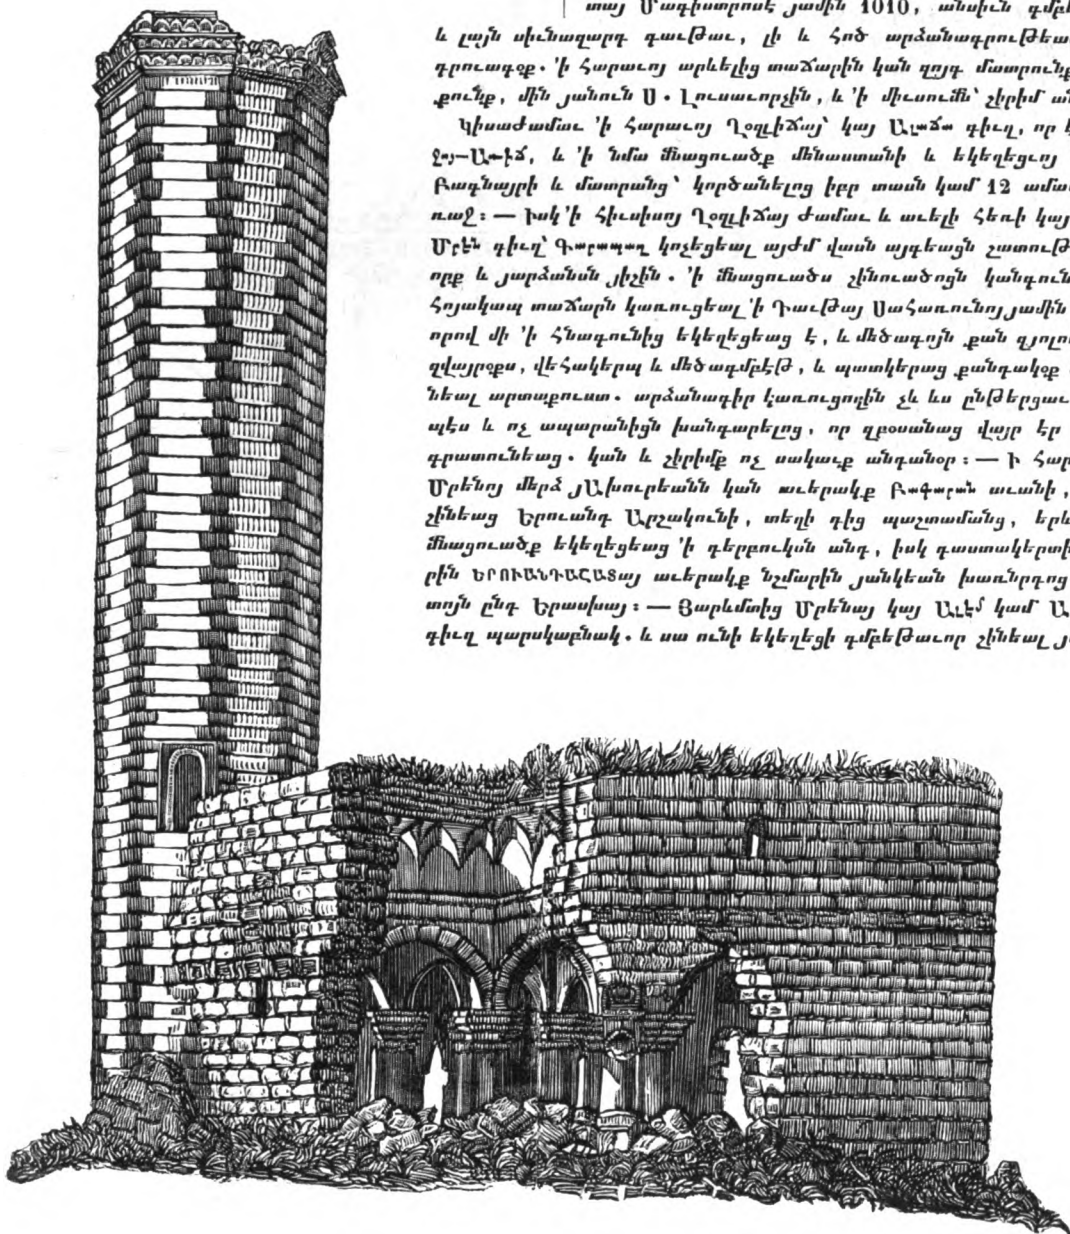 տայ Մագիստրոսէ յամին 1010, անսիւն գմբե
և լայն սիւնազարդ գաւթաւ, լի և հոծ արձանագրութեա
գրուագօք. 'ի հարաւոյ արևելից տաճարին կան զոյգ մատրունք
քունք, մին յանուն Ս. Լուսաւորչին, և 'ի միւսումն՝ շիրիմ ան
Կիսաժամաւ 'ի հարաւոյ Ղօզլիճայ՝ կայ Ալաճա գիւղ, որ
և 'ի նմա մնացուածք մենաստանի և եկեղեցւոյ
Բագնայրի և մատրանց՝ կործանելոց իբր տասն կամ 12 ամաւ
ռաջ: — Իսկ 'ի հիւսիսոյ Ղօզլիճայ ժամաւ և աւելի հեռի կայ
Մրէն գիւղ՝ Գարապաղ կոչեցեալ այժմ վասն այգեացն շատութ
որք և յարձանսն յիշին. 'ի մնացուածս շինուածոցն կանգուն
հոյակապ տաճարն կառուցեալ 'ի Դաւթայ Սահառունոյ յամին
որով մի 'ի հնագունից եկեղեցեաց է, և մեծագոյն քան զյոլո
զվայրօքս, վեհակերպ և մեծագմբէթ, և պատկերաց քանդակօք
նեալ արտաքուստ. արձանագիր կառուցողին չև ևս ընթերցաւ
պէս և ոչ ապարանիցն խանգարելոց, որ զբօսանաց վայր եր
գրատունեաց. կան և շիրիմք ոչ սակաւք անդանօր: — Ի հար
Մրենոյ մերձ յԱխուրեանն կան աւերակք Բագարան աւանի,
շինեաց Երուանդ Արշակունի, տեղի դից պաշտամանց, երև
մնացուածք եկեղեցեաց 'ի դերբուկսն անդ, իսկ դաստակերտի
րին ԵՐՈՒԱՆԴԱՇԱՏայ աւերակք նշմարին յանկեան խառնրդոց
տոյն ընդ Երասխայ: — Յարևմտից Մրենայ կայ Ալէմ կամ Ա
գիւղ պարսկաբնակ. և սա ունի եկեղեցի գմբեթաւոր շինեալ յ